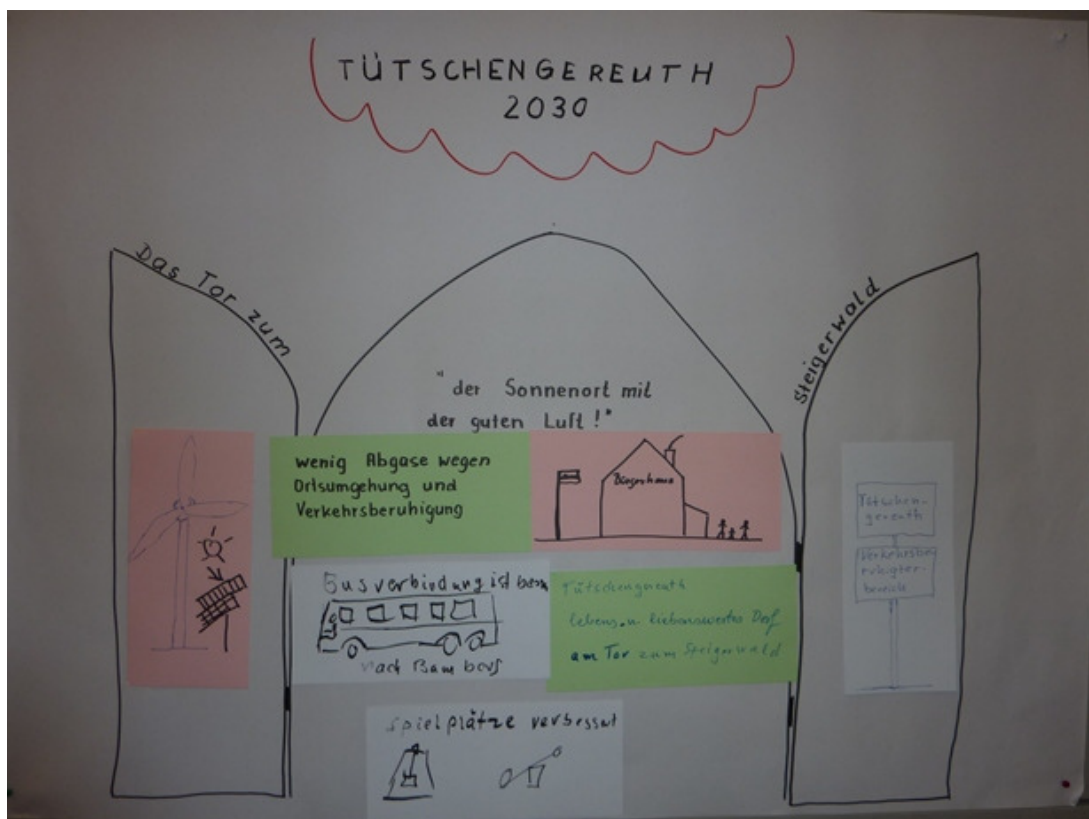 TÜTSCHENGEREUTH
2030
Das Tor zum
Steigerwald
"der Sonnenort mit
der guten Luft!"
wenig Abgase wegen
Ortsumgehung und
Verkehrsberuhigung
Bürgerhaus
Busverbindung ist
nach Bamberg
Tütschengreuth
lebens.u. liebenswertes Dorf
am Tor zum Steigerwald
Tütschen-
gereuth
Verkehrsbe-
ruhigter-
bereich
Spielplätze verbessert